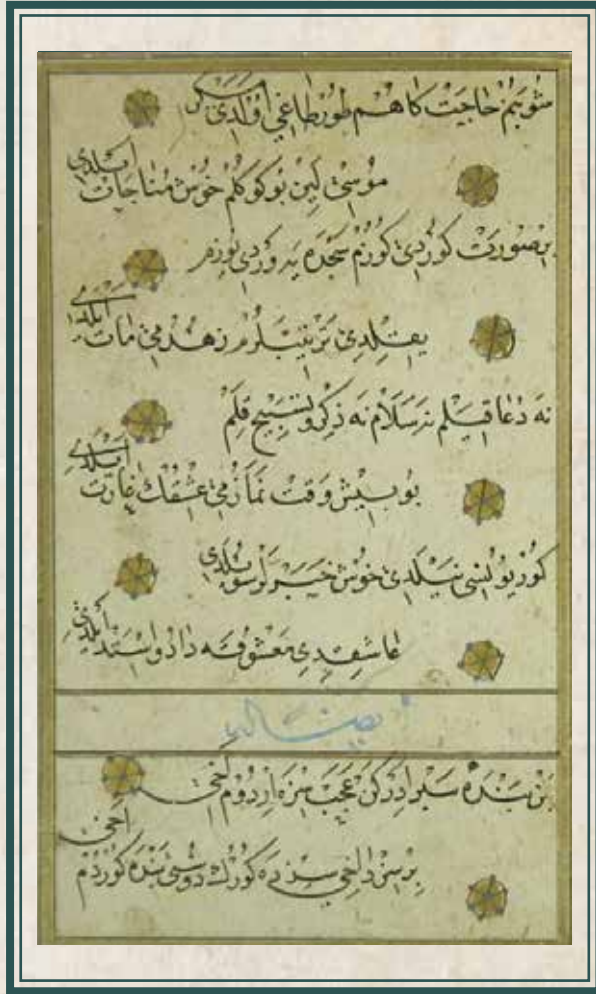 شويم حاجت كاهم طور طاغي اولدى مسكن
موسى لين بو كوكلم خوش مناجات ايلدى
بر صورت كوردى كوزم سجده يه وردى يوزم
يقلدى ترتيبلرم زهدمى مات ايلدى
نه دعا قيلم نه سلام نه ذكر و تسبيح قلم
بو بيش وقت نمازمى عشقك غارت ايلدى
كوز يولنى خوش خبرلر سويلدى
عاشقدى معشوقه داد و استد ايلدى
بن بنده سير ادركن عجب سره اردوم اخى
بر سز داخى سزده كورك دوستى بنده كوردم اخى